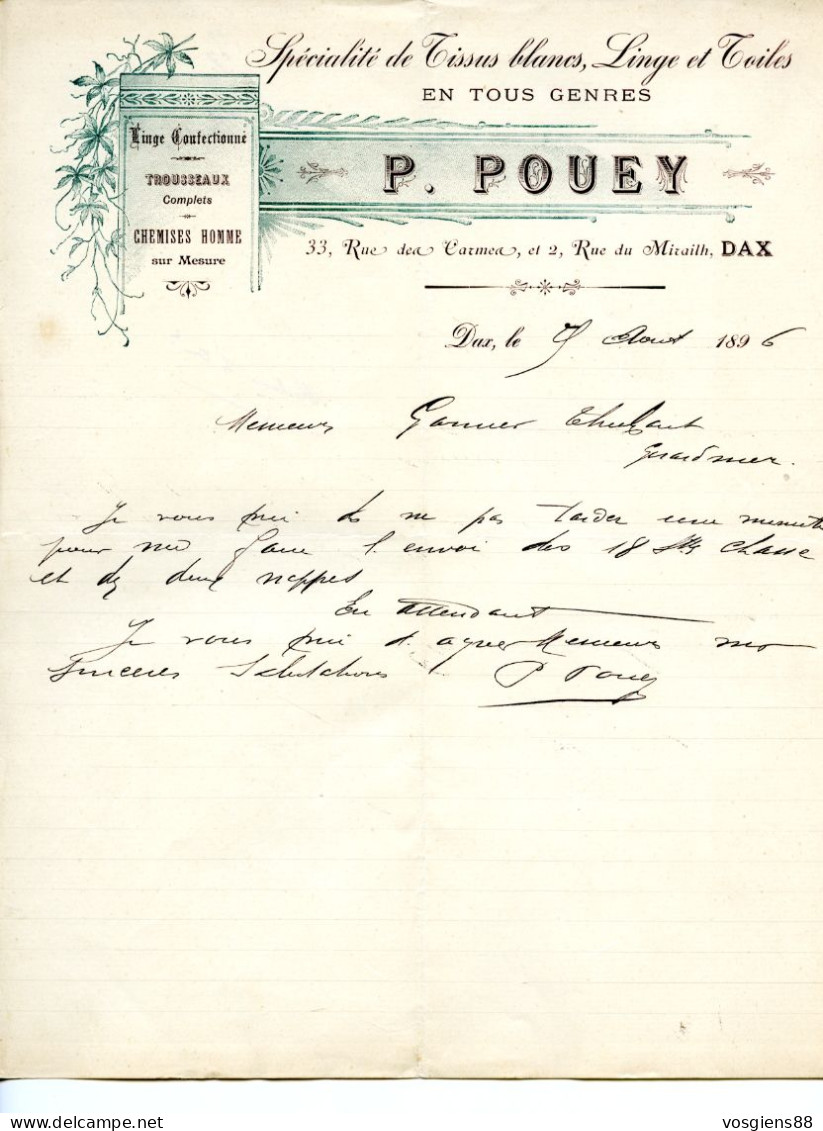 Spécialité de Tissus blancs, Linge et Toiles
EN TOUS GENRES
Linge Confectionné
TROUSSEAUX
Complets
CHEMISES HOMME
sur Mesure
P. POUEY
33, Rue des Carmes, et 2, Rue du Mirailh, DAX
Dax, le Août 1896
Messieurs Garnier Thiebaut
Gerardmer.
Je vous prie de ne pas tarder une minute
pour me faire l'envoi des 18 chasse
et des deux nappes
En attendant
Je vous prie d'agréer Messieurs mes
sinceres Salutations P Pouey
vosgiens88